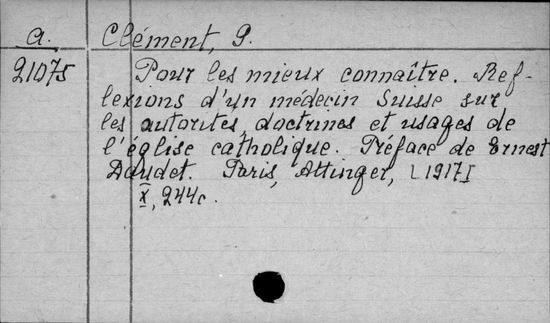 a. Clément, P.
21075 Pour les mieux connaître. Ref-
lexions d'un médecin Suisse sur
les autorités, doctrines et usages de
l'église catholique. Préface de Ernest
Daudet. Paris, Attinger, [1917]
X, 244c.